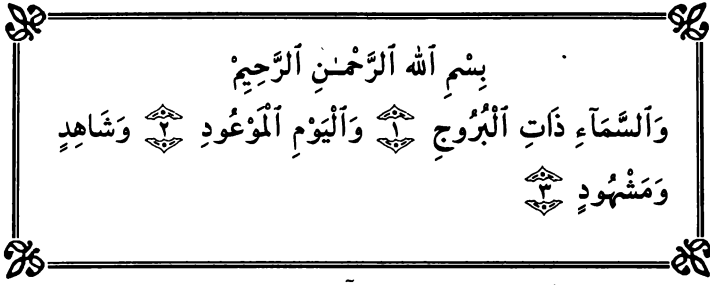 بِسْمِ ٱللهِ ٱلرَّحْمَـٰنِ ٱلرَّحِيمْ
وَٱلسَّمَآءِ ذَاتِ ٱلْبُرُوجِ ١ وَٱلْيَوْمِ ٱلْمَوْعُودِ ٢ وَشَاهِدٍ
وَمَشْهُودٍ ٣